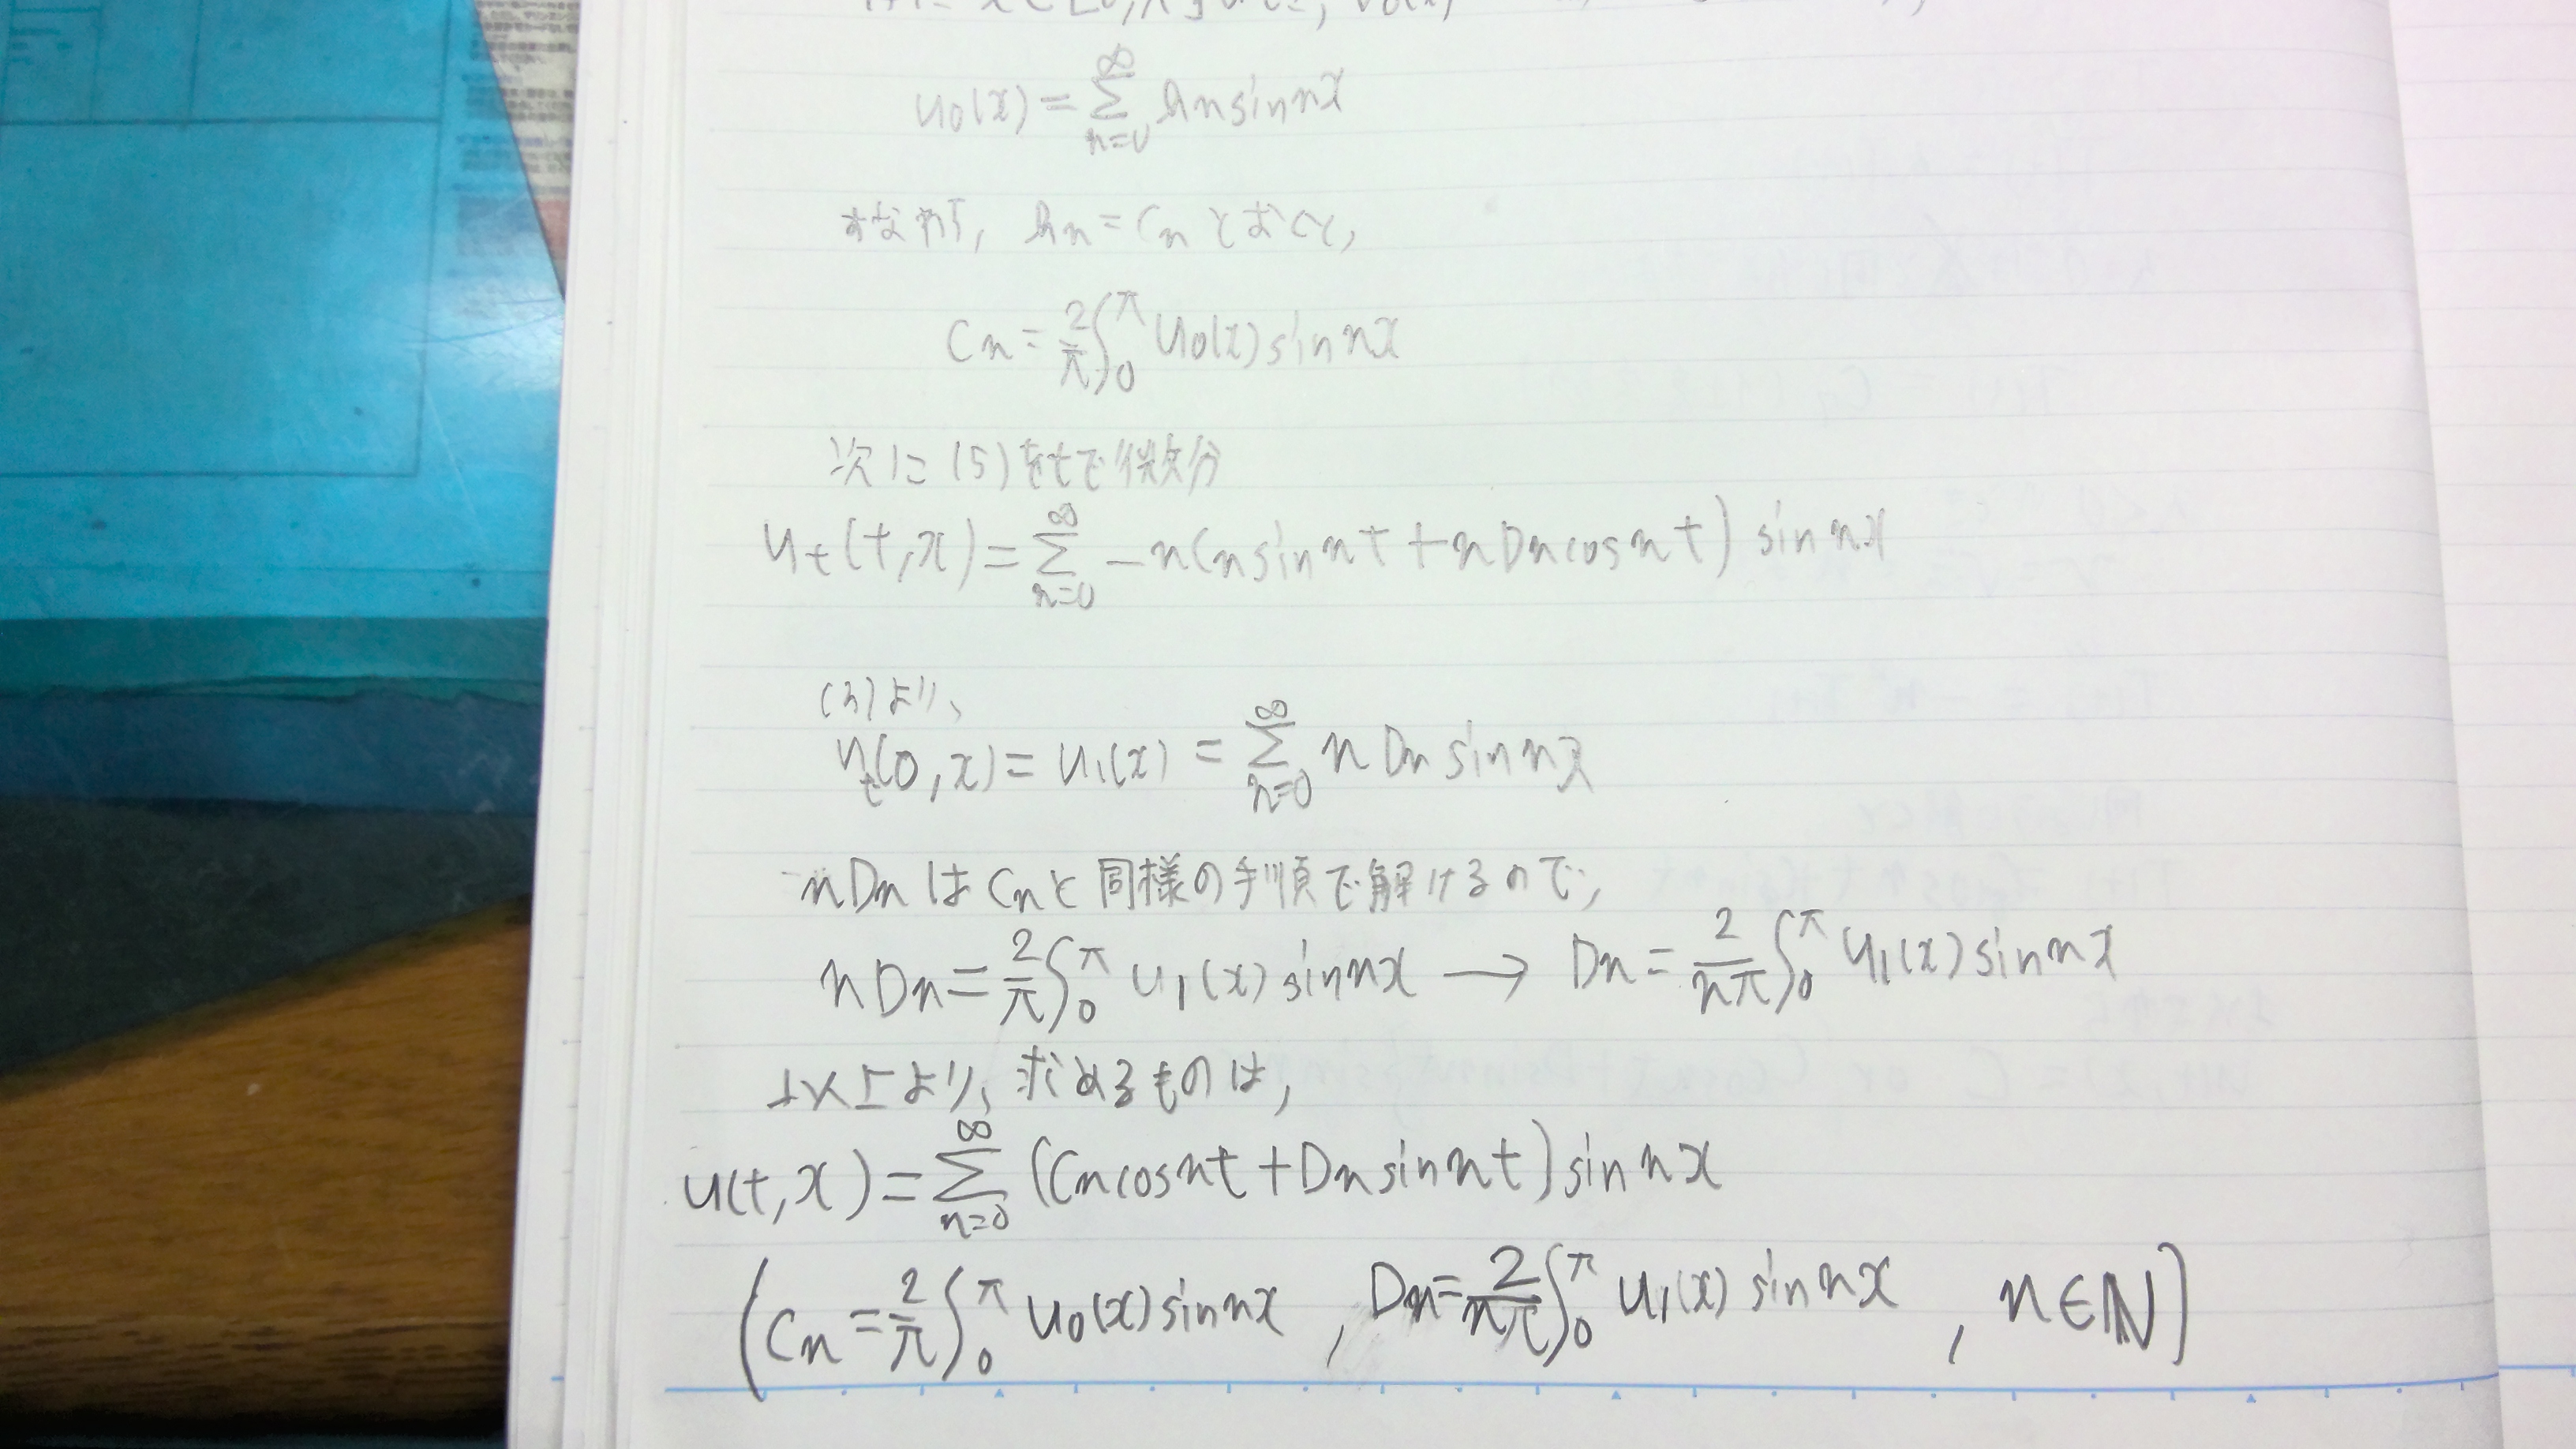 u₀(x) = Σ_{n=0}^{∞} bn sin nx
すなわち, bn = Cn とおくと,
Cn = 2/π ∫₀^π u₀(x) sin nx
次に (5) をtで微分
u_t(t,x) = Σ_{n=0}^{∞} -n Cn sin nt + n Dn cos nt) sin nx
(3)より、
u_t(0,x) = u₁(x) = Σ_{n=0}^{∞} n Dn sin nx
n Dn は Cn と 同様の手順で解けるので,
n Dn = 2/π ∫₀^π u₁(x) sin nx → Dn = 2/nπ ∫₀^π u₁(x) sin nx
以上より、求めるものは,
u(t,x) = Σ_{n=0}^{∞} (Cn cos nt + Dn sin nt) sin nx
(Cn = 2/π ∫₀^π u₀(x) sin nx , Dn = 2/nπ ∫₀^π u₁(x) sin nx , n∈ℕ)